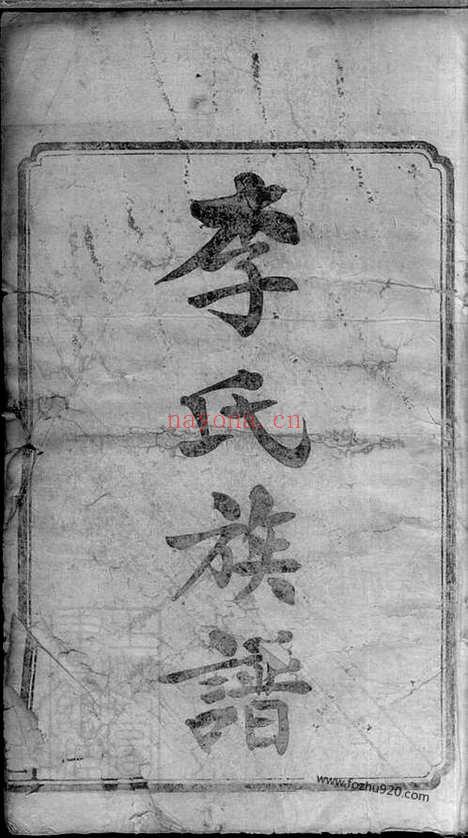 李氏族譜
nayona.cn
www.fozhu920.com